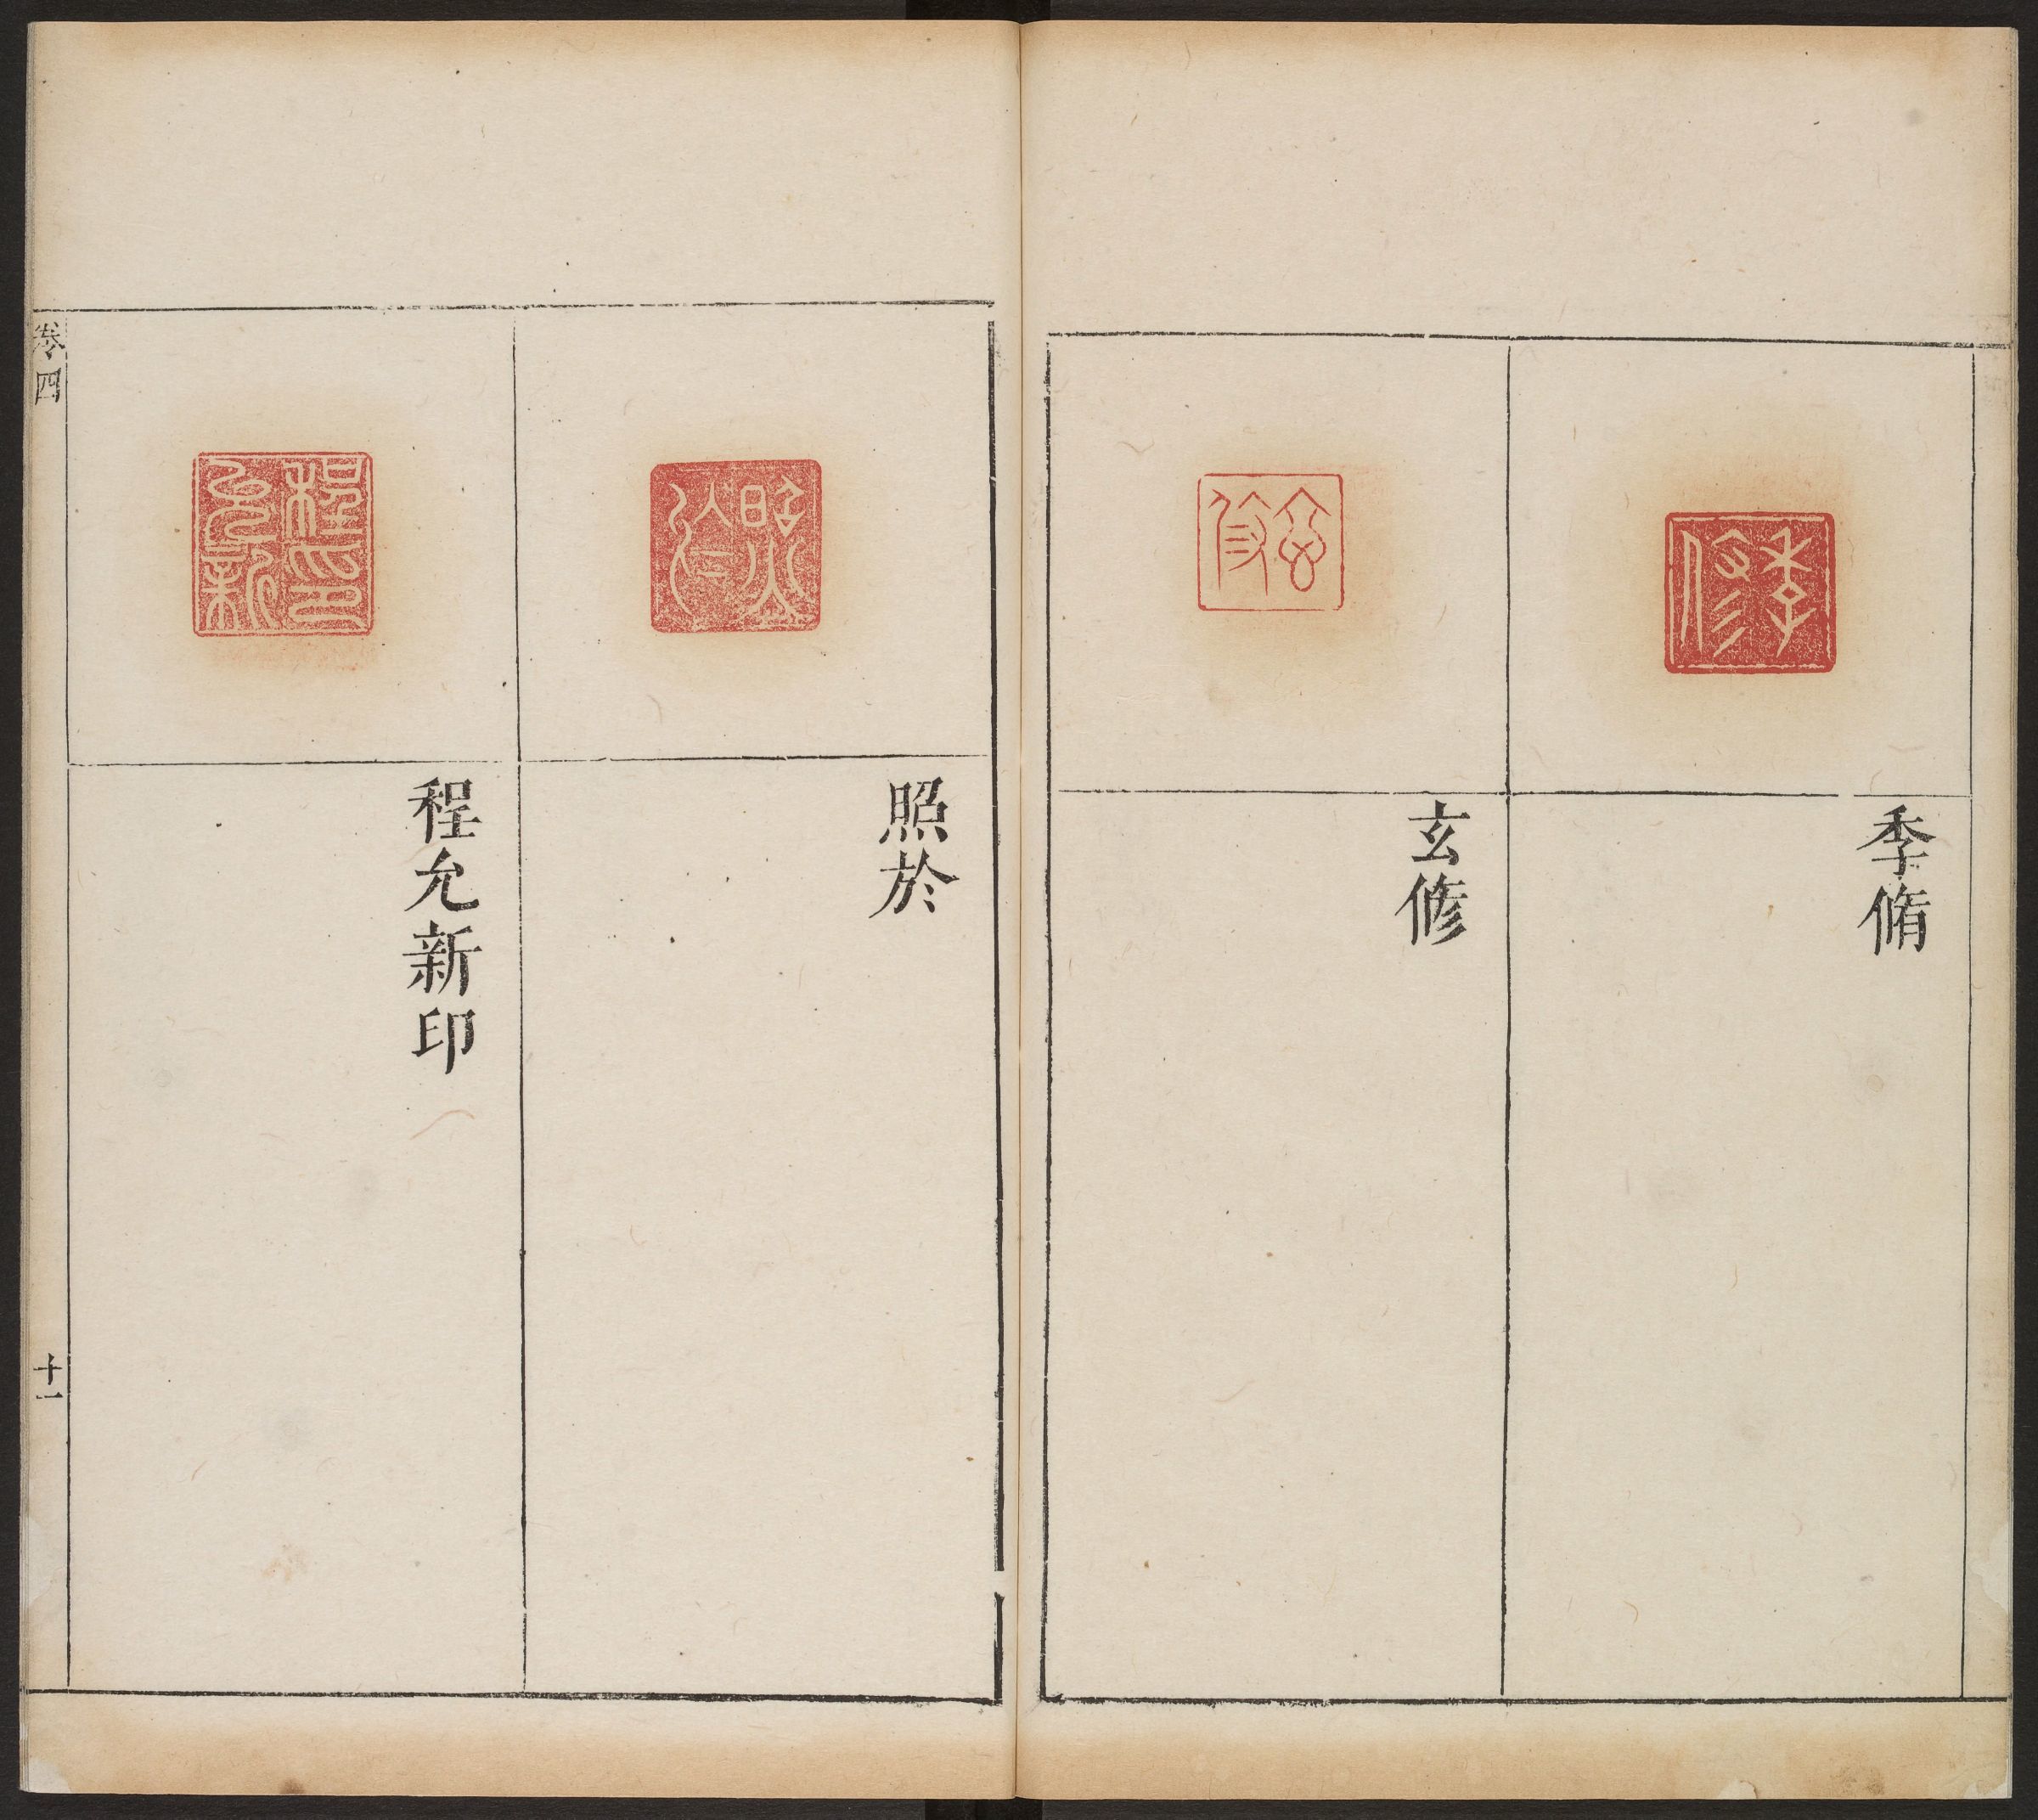 季脩
玄修
照於
程允新印
卷四
十一